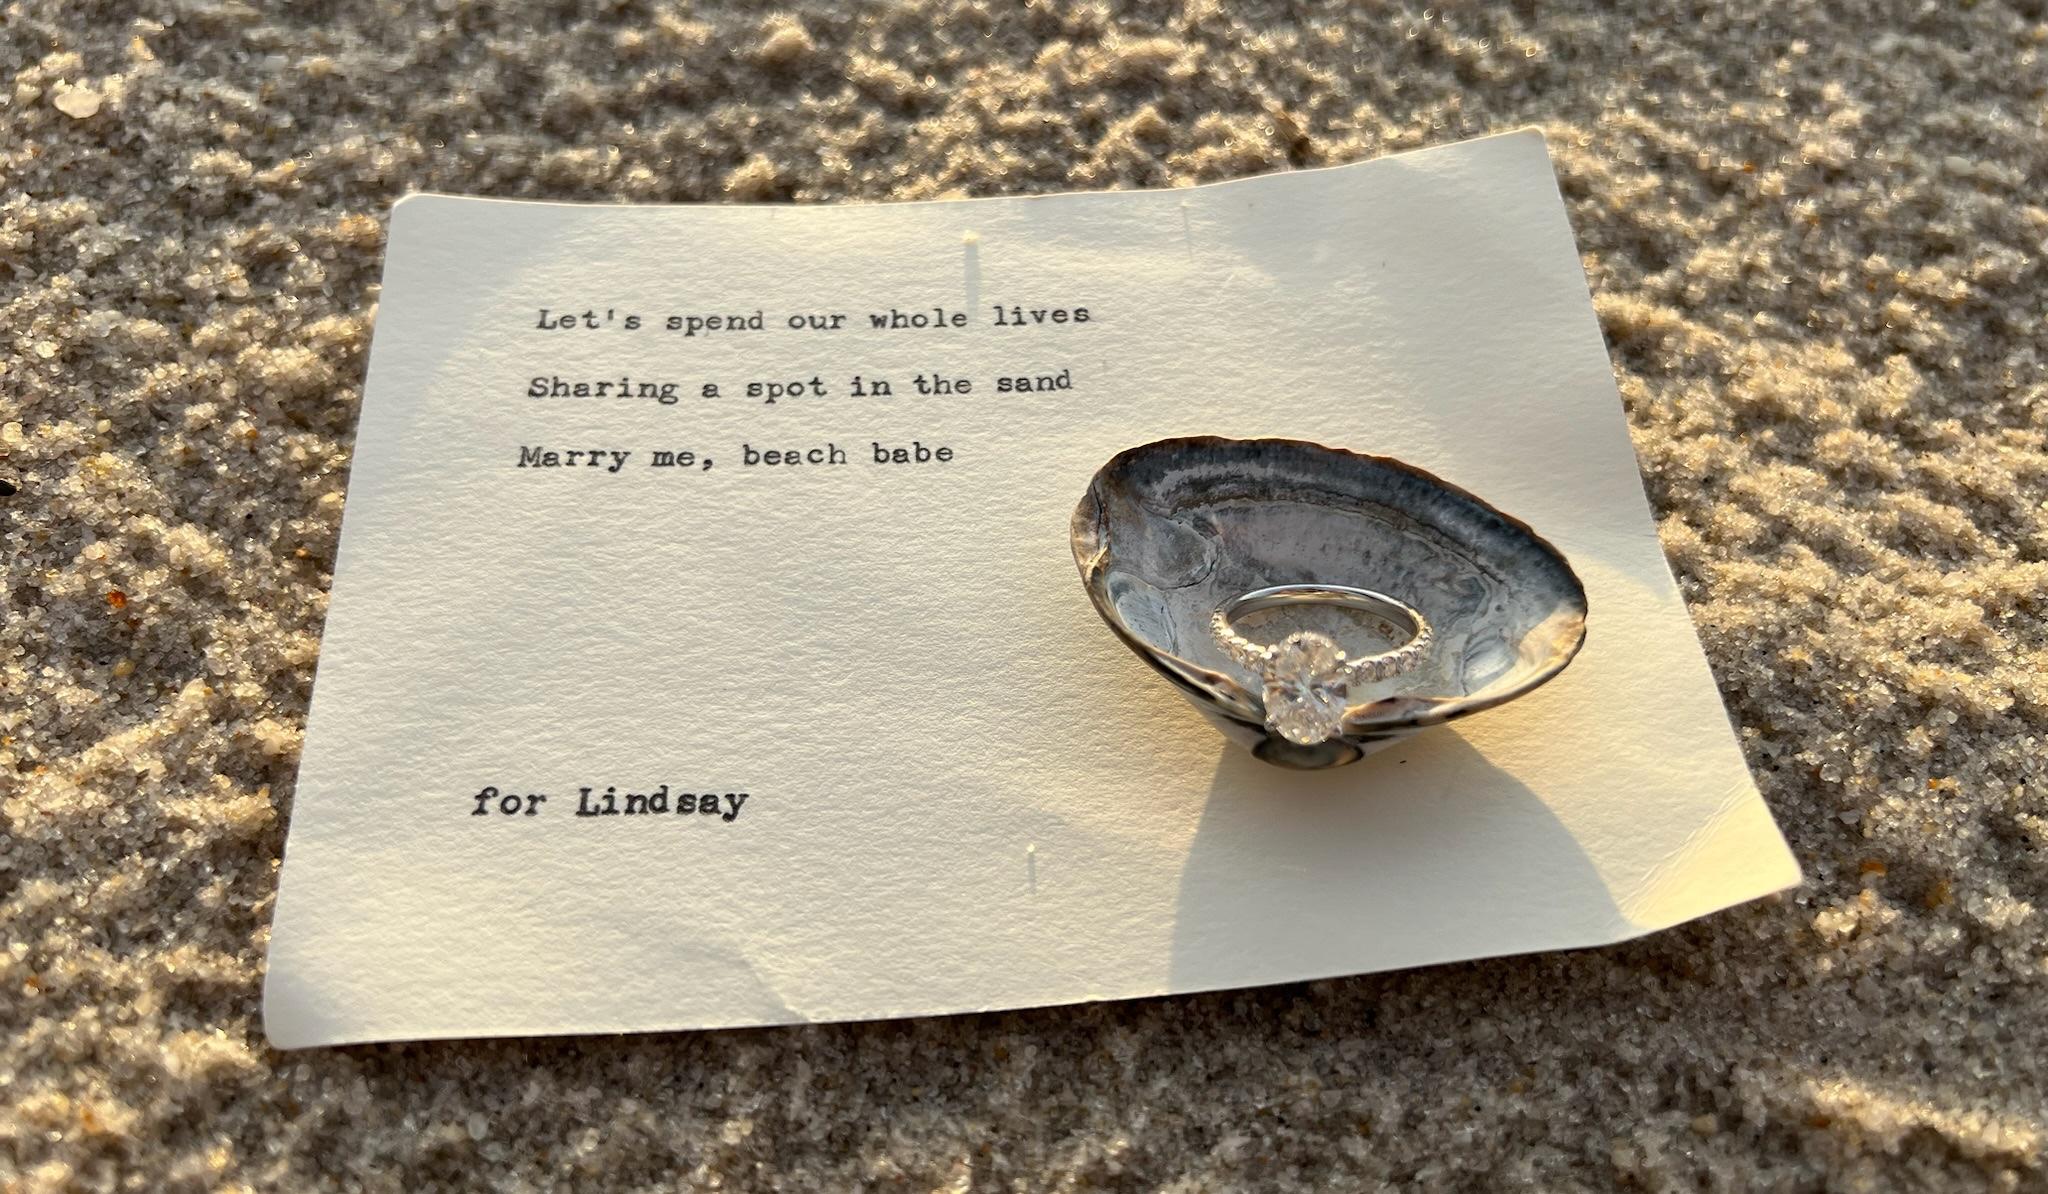 Let's spend our whole lives
Sharing a spot in the sand
Marry me, beach babe
for Lindsay